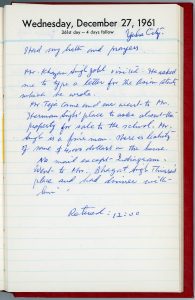 Wednesday, December 27, 1961
361st day — 4 days follow
Yuba City.
Had my bath and prayers
Mr. Khazan Singh Johl visited. He asked
me to type a letter for the Union
which he wrote.
Mr Teja came and we went to Mr.
Herman Singh's place to ask about the
property for sale to the school. Mr.
Singh is a fine man. There is liability
of some dollars on the house.
No mail except Indiagram.
Went to Mr. Bhagat Singh Thiara's
place and had dinner with
him
Retired: 12:00